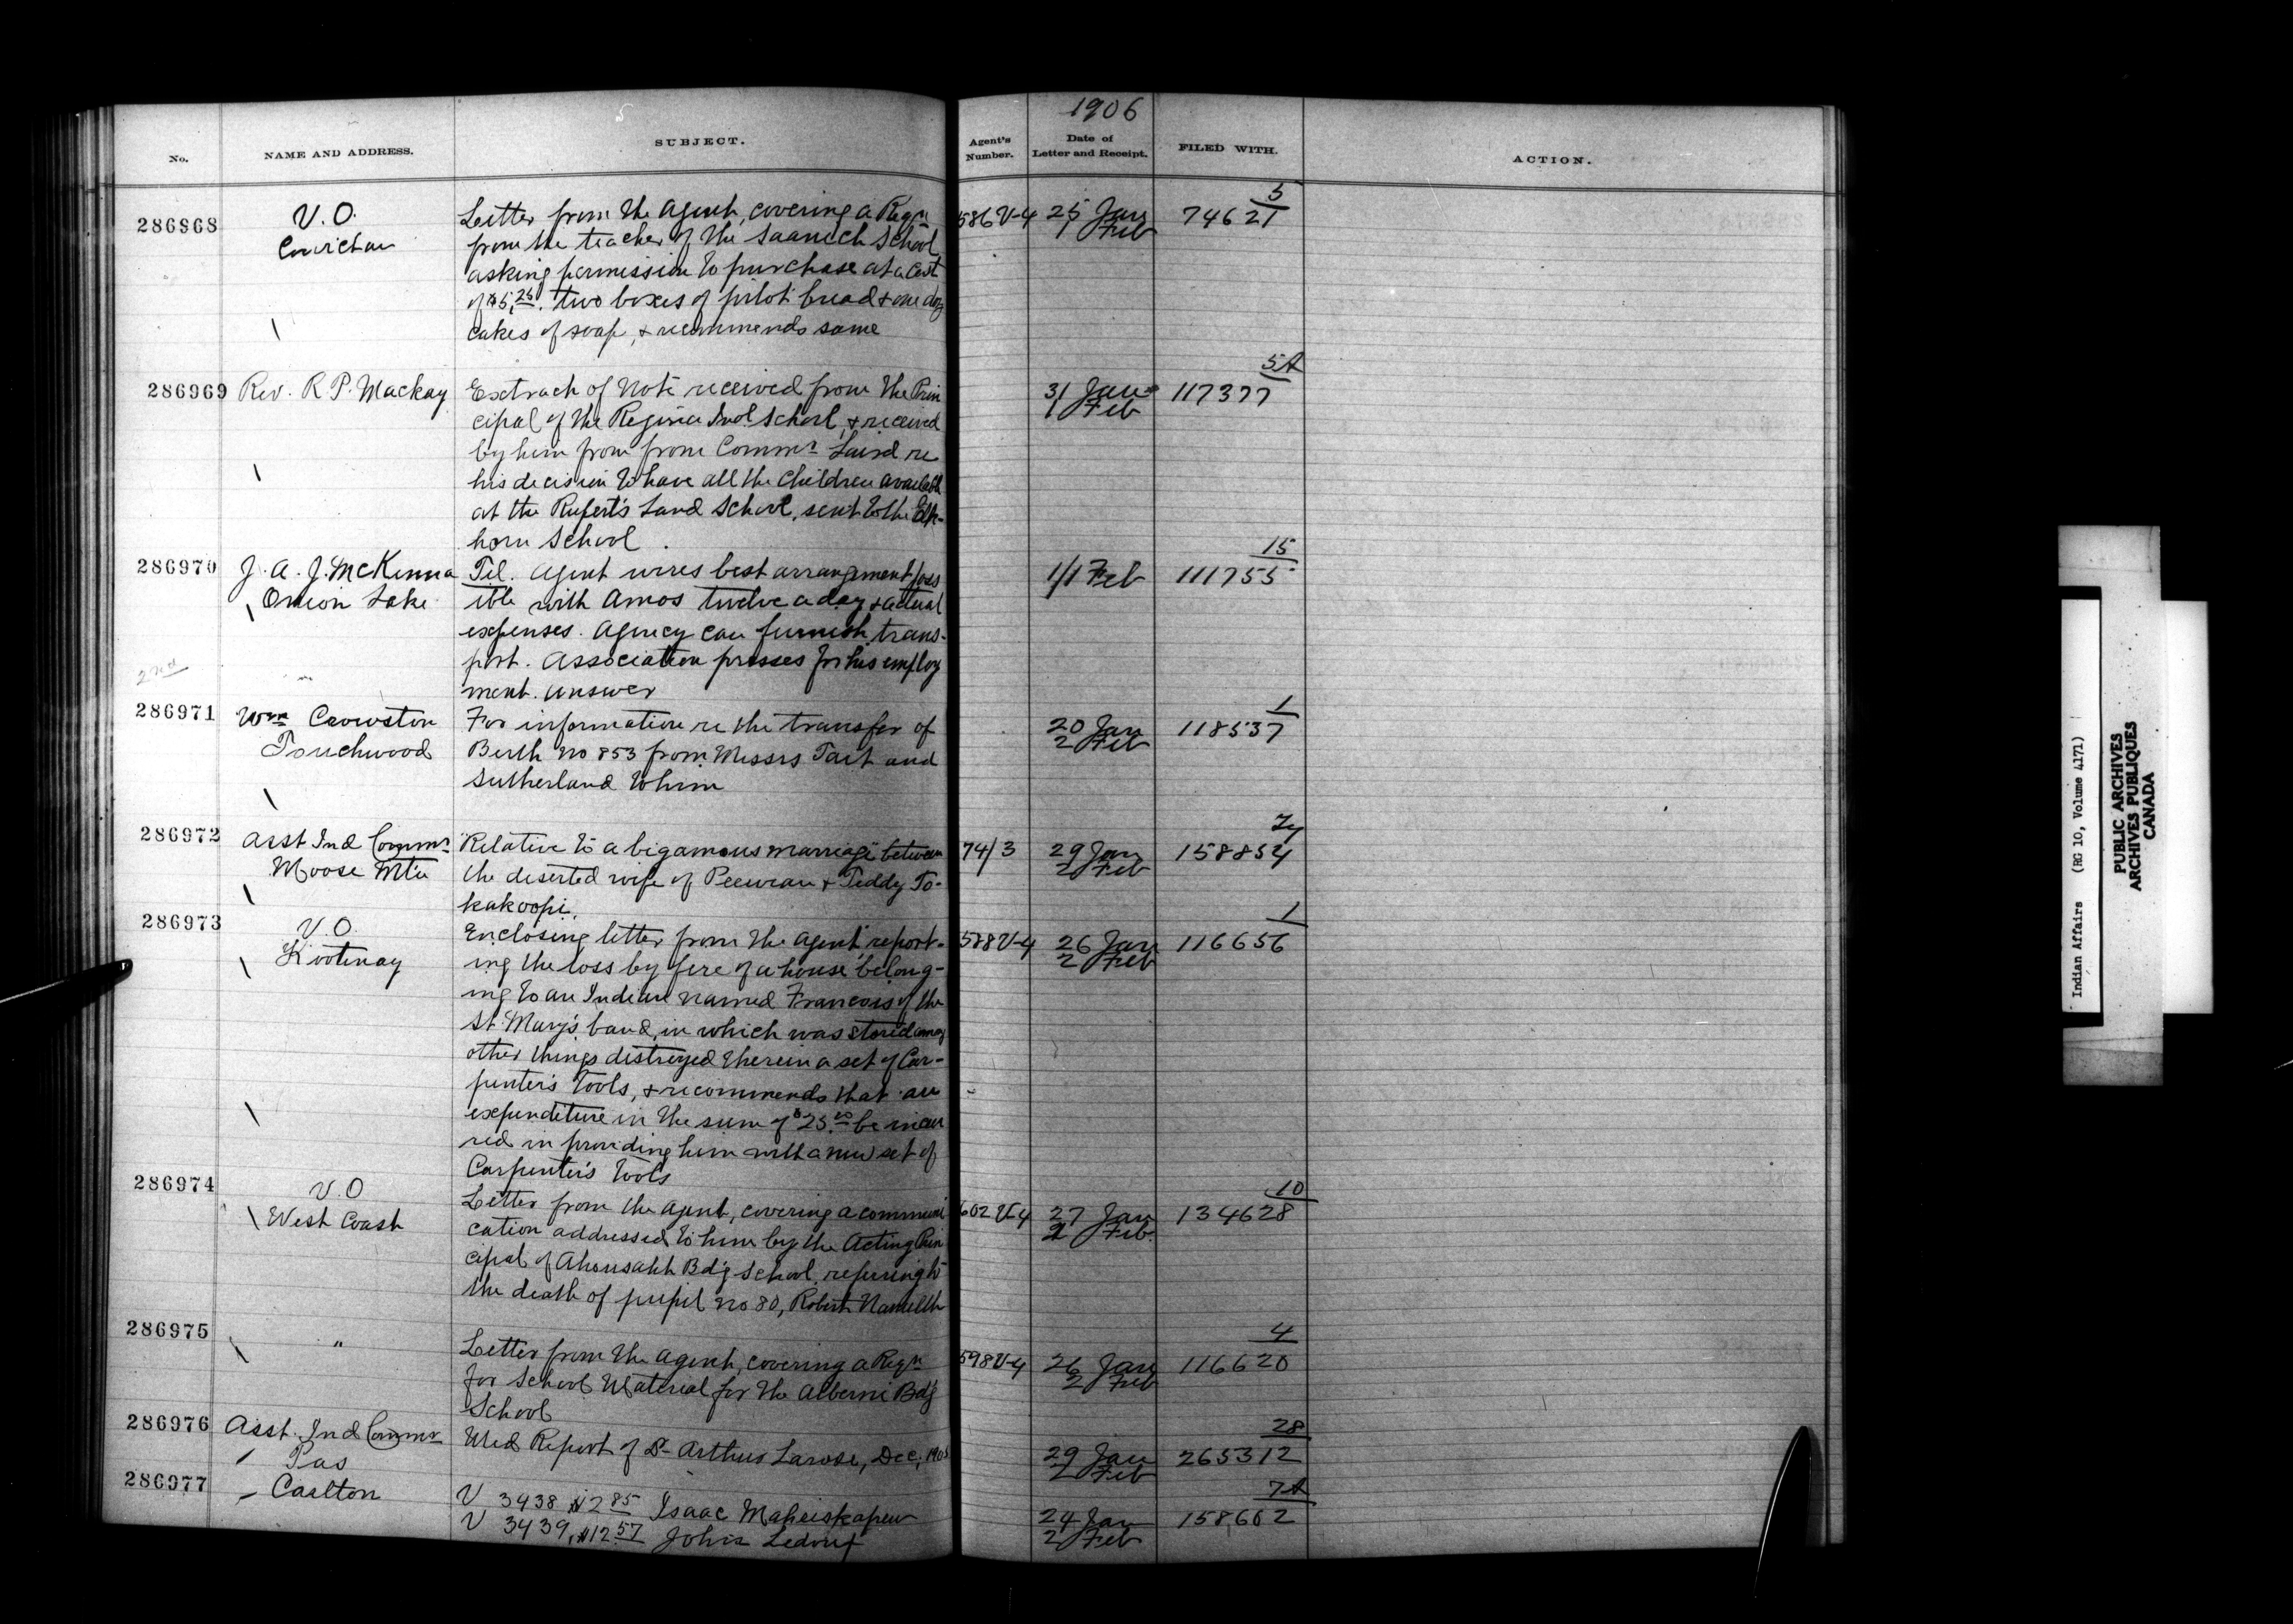 1906
No. NAME AND ADDRESS. SUBJECT. Agent's Number. Date of Letter and Receipt. FILED WITH. ACTION.
5
286968 V.O. Letter from the Agent, covering a Reqn 586 V-4 25 Jan 74621
Cowichan from the teacher of the Saanich School 1 Feb
asking permission to purchase at a cost
of $5.25. two boxes of pilot bread & one doz
cakes of soap, & recommends same
5A
286969 Rev. R P. Mackay Extract of Note received from the Prin 31 Jan 117377
cipal of the Regina Ind. School, & received 1 Feb
by him from from Commr Laird re
his decision to have all the children available
at the Rupert's Land School, sent to the Elk-
horn School.
15
286970 J. A. J. McKenna Tel. Agent wires best arrangement poss 1/1 Feb 111755
Onion Lake ible with Amos twelve a day & actual
expenses. Agency can furnish trans-
port. Association presses for his employ
2nd
ment. Answer
1
286971 Wm Crowston For information re the transfer of 20 Jan 118537
Touchwood Berth No 853 from Messrs Tait and 2 Feb
Sutherland to him
286972 Asst Ind Commr "Relative to a bigamous marriage" between 74/3 29 Jan 158854
Moose Mtn the deserted wife of Peewean & Teddy To- 2 Feb
kakoopi.
1
286973 V.O. Enclosing letter from the Agent report- 588 V-4 26 Jan 116656
Kootenay ing the loss by fire of a house belong- 2 Feb
ing to an Indian named Francois of the
St. Mary's band, in which was stored among
other things distroyed therein a set of Car-
penter's tools, & recommends that an
expenditure in the sum of $25.00 be incur
red in providing him with a new set of
Carpenter's tools
10
286974 V.O Letter from the Agent, covering a communi 602 V-4 27 Jan 134628
West Coast cation addressed to him by the Acting Prin 2 Feb.
cipal of Ahousaht Bd'g School, referring to
the death of pupil No 80, Robert
4
286975 " Letter from the Agent, covering a Reqn 598 V-4 26 Jan 116620
for School Material for the Alberni Bd'g 2 Feb
School
28
286976 Asst. Ind Commr Med Report of Dr Arthur Larose, Dec. 1905 29 Jan 265312
Pas 2 Feb
7A
286977 Carlton V 3438 $2 85 Isaac 24 Jan 158602
V 3439, $12.57 John 2 Feb
Indian Affairs (RG 10, Volume 4171)
PUBLIC ARCHIVES
ARCHIVES PUBLIQUES
CANADA